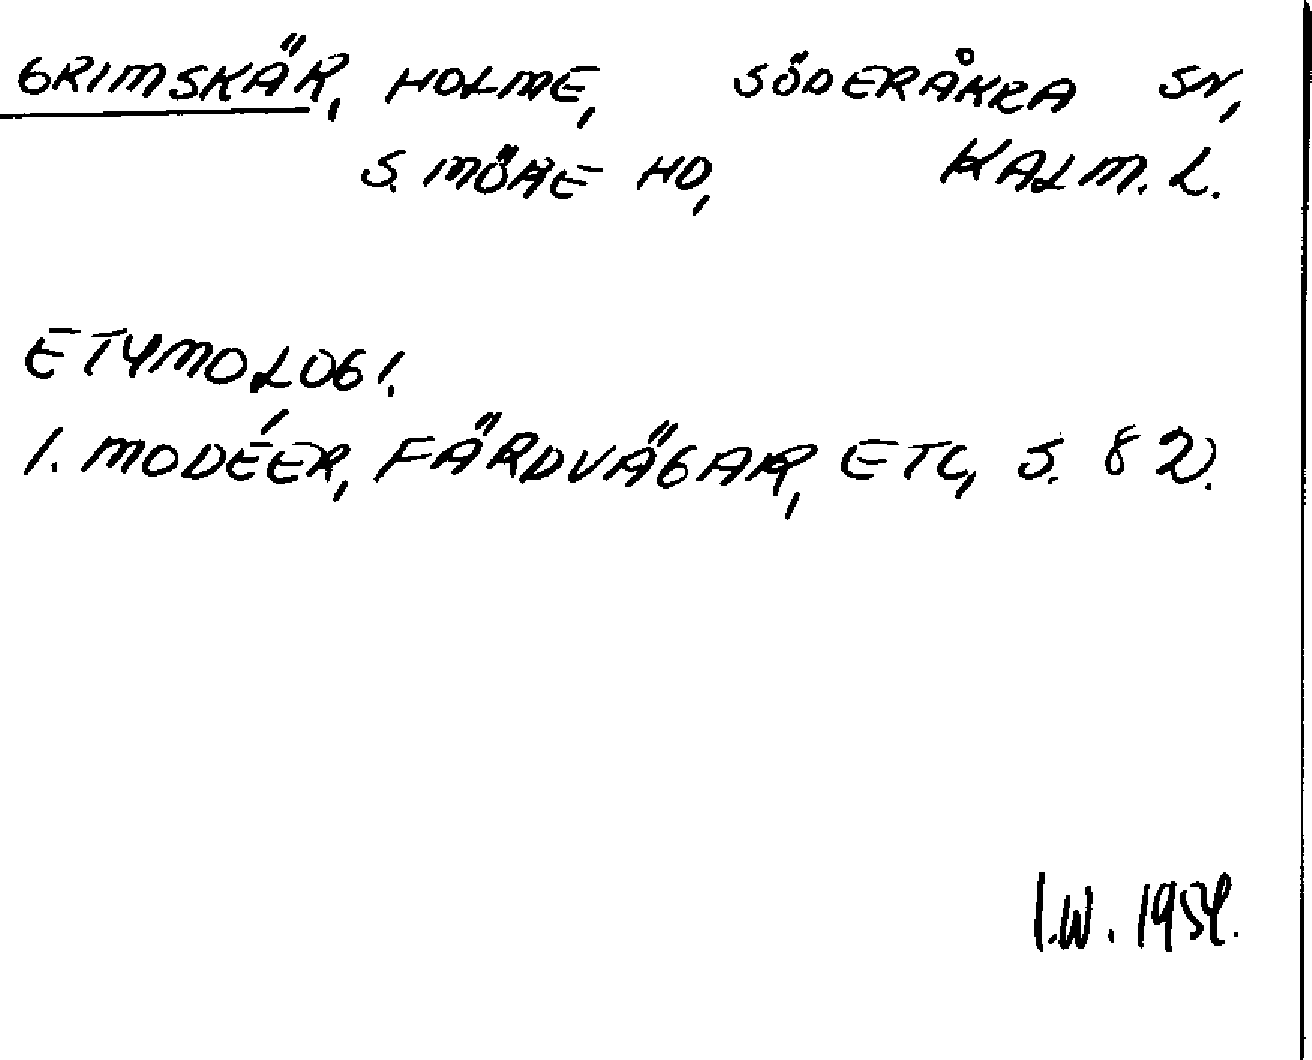 GRIMSKÄR, HOLME, SÖDERÅKRA SN,
S. MÖRE HD, KALM. L.
ETYMOLOGI.
I. MODÉER, FÄRDVÄGAR, ETC, S. 82.
I.W. 1954.